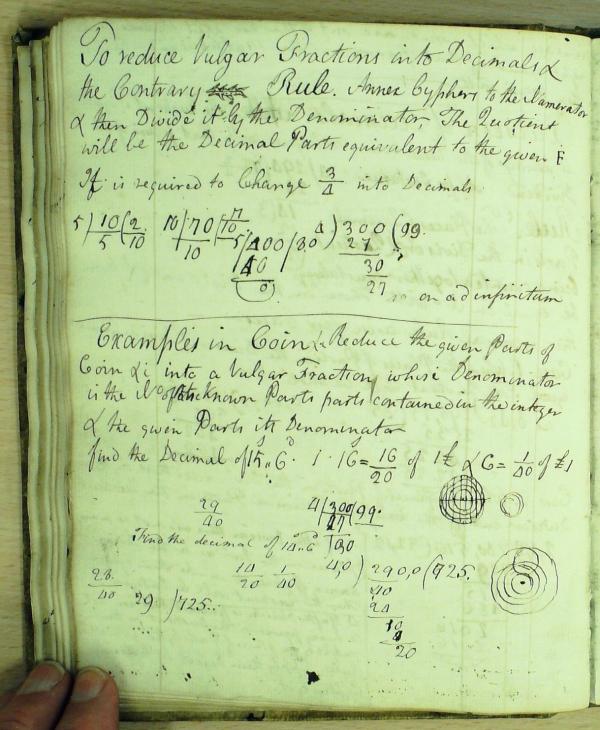 To reduce Vulgar Fractions into Decimals &
the Contrary Rule. Annex Cyphers to the Numerator
& then Divide it by the Denominator, The Quotient
will be the Decimal Parts equivalent to the given F
If is required to Change 3/4 into Decimals
5) 10 (2/10 10) 70 (7/10 400 (80 ) 300 (99.
5 10 40 27
0 30
27 on ad infinitum
Examples in Coin Reduce the given Parts of
Coin &c into a Vulgar Fraction, whose Denominator
is the No of the known Parts parts contained in the integer
& the given Parts its Denominator
find the Decimal of 15 " 6 · 1 · 16 = 16/20 of 1£ & 6 = 1/40 of £1
29/40 300 (99.
27
Find the decimal of 14 " 6 30
14/20 1/40 4,0 ) 290,0 (725.
29 ) 725.
20